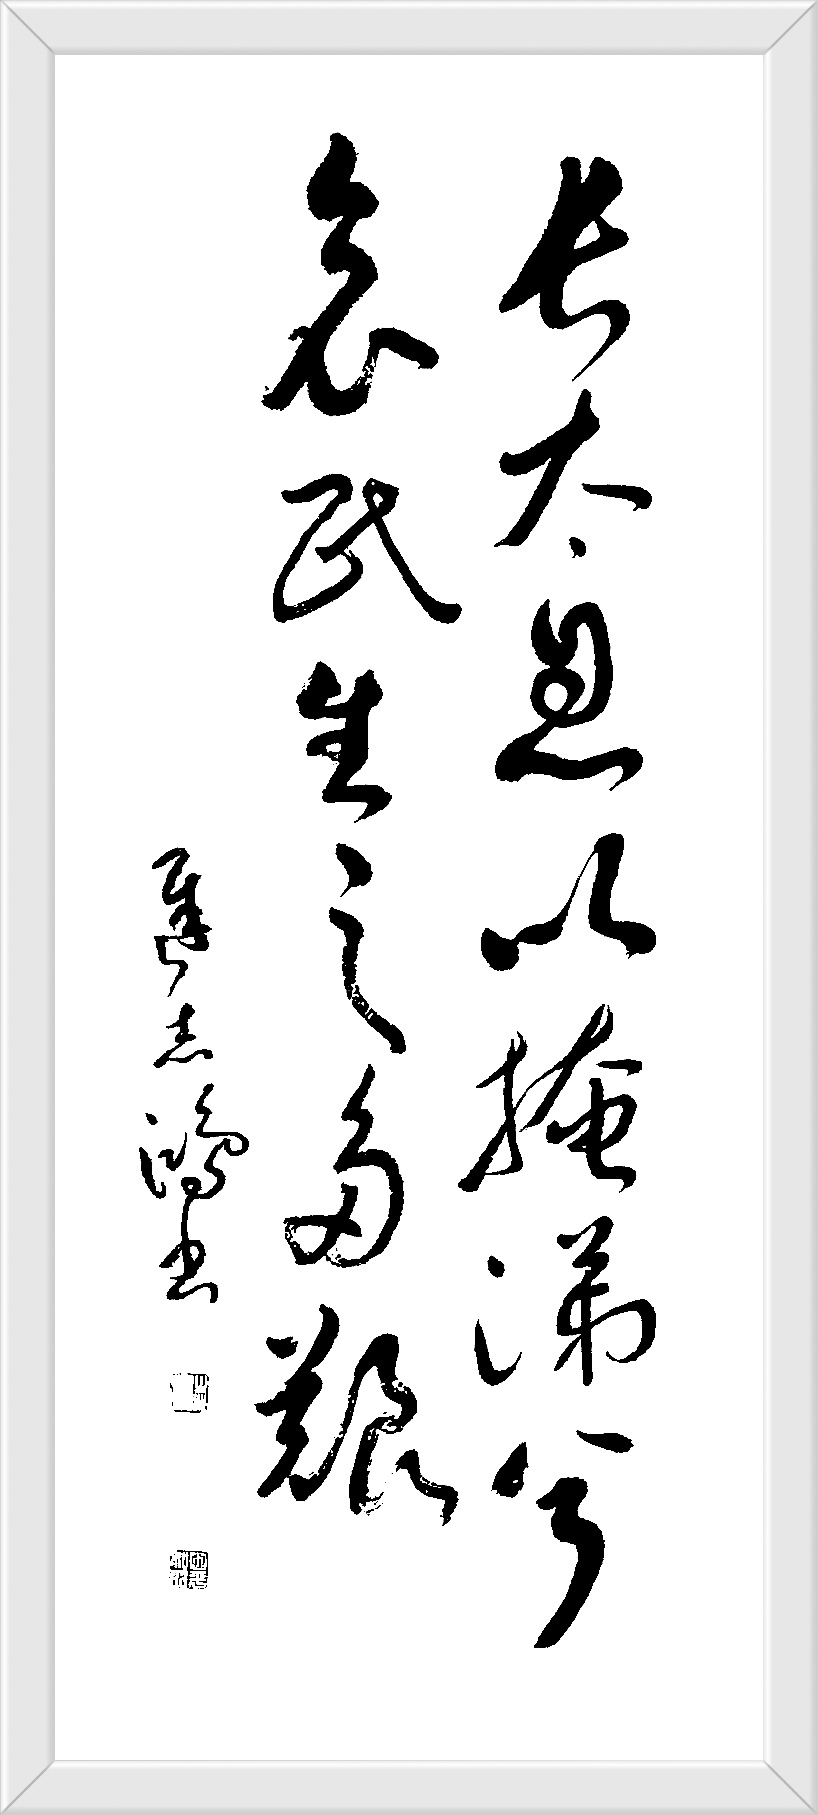 长太息以掩涕兮
哀民生之多艱
志鴻书